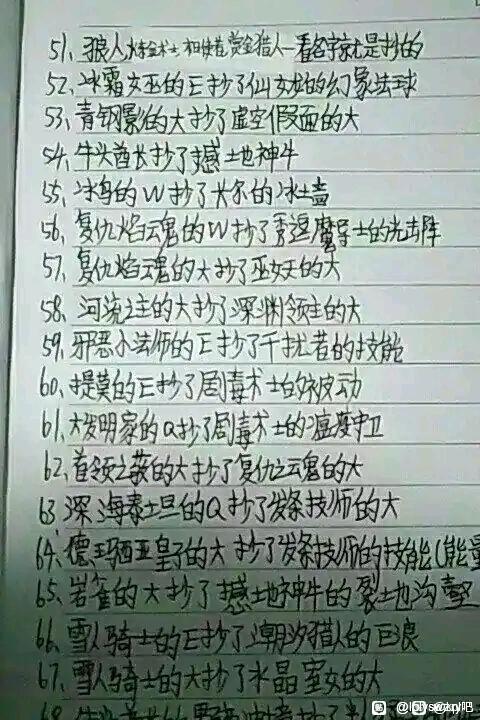 51、狼人 炼金术士 和 赏金猎人一看名字就是抄的
52、冰霜女巫的E抄了仙女龙的幻象法球
53、青钢影的大抄了虚空假面的大
54、牛头酋长抄了撼地神牛
55、冰鸟的W抄了卡尔的冰墙
56、复仇焰魂的W抄了秀逗魔导士的光击阵
57、复仇焰魂的大抄了巫妖王的大
58、河流之主的大抄了深渊领主的大
59、邪恶小法师的E抄了干扰者的技能
60、提莫的E抄了剧毒术士的被动
61、大发明家的Q抄了剧毒术士的瘟疫守卫
62、首领之傲的大抄了复仇之魂的大
63、深海泰坦的Q抄了发条技师的大
64、德玛西亚皇子的大抄了发条技师的技能(能量
65、岩雀的大抄了撼地神牛的裂地沟壑
66、雪人骑士的E抄了潮汐猎人的巨浪
67、雪人骑士的大抄了水晶室女的大
68